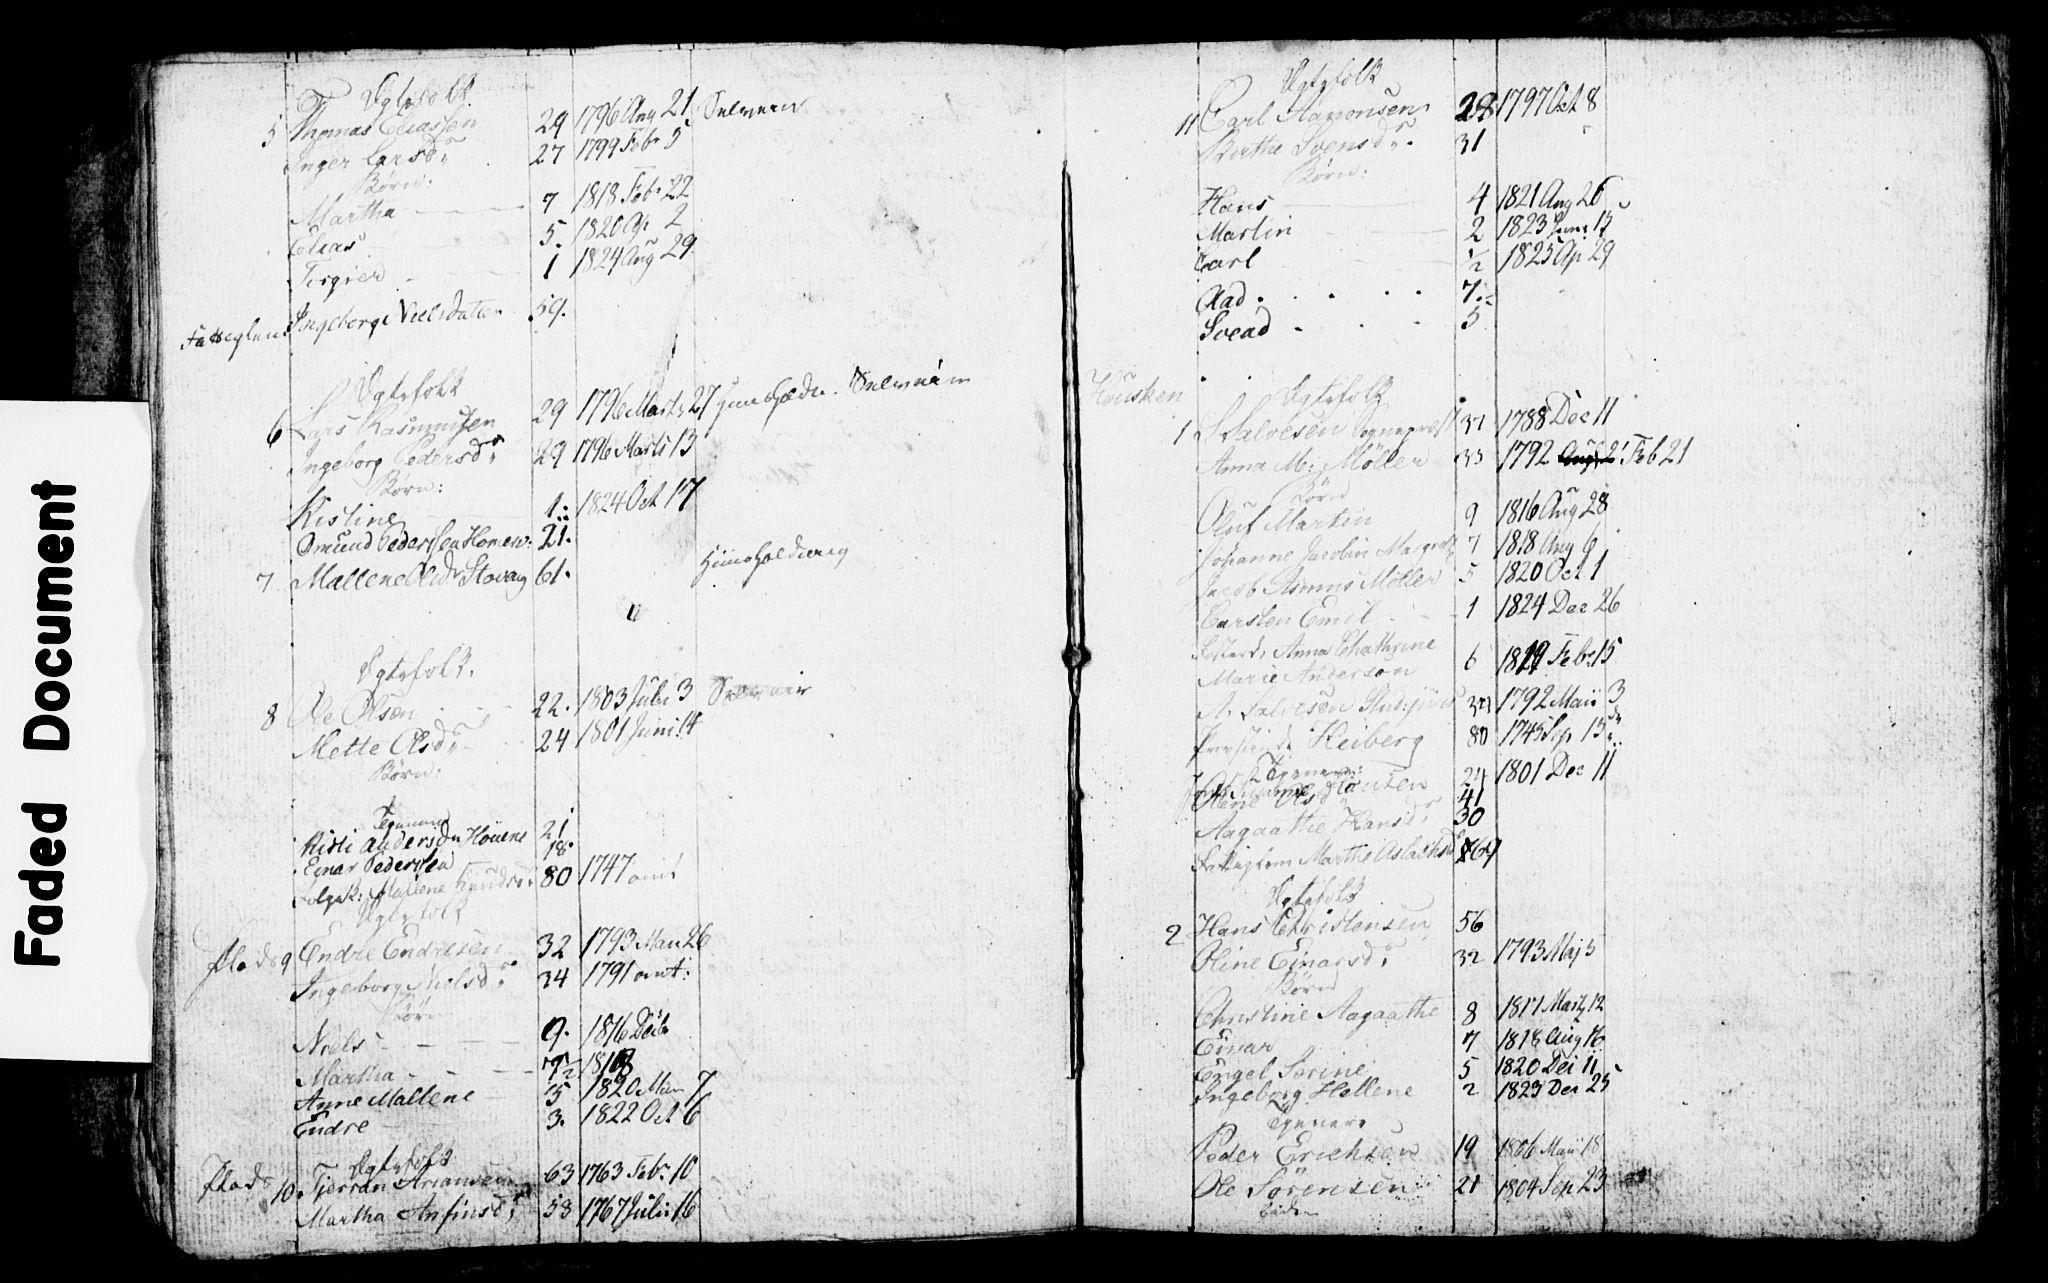 Faded Document
Ægtefolk
5 Thomas Eliassen 29 1796 Aug 21 Selveier
Inger Larsdr 27 1799 Febr 5
Børn:
Martha 7 1818 Febr 22
Elias 5. 1820 Ap 2
1 1824 Aug 29
Ingeborg Nielsdatter 59.
Ægtefolk
6 Lars Rasmussen 29 1796 Marts 27 Selveier
Ingeborg Pedersdr 29 1796 Marts 13
Børn:
Kistine 1. 1824 Oct 17
Omund Pedersen 21.
7 Mallene Olsdr Stovaug 61.
Ægtefolk.
8 Ole Olsen 22. 1803 Julii 3 Selveier
Mette Olsdr 24 1801 Juni 14
Børn:
Tjenere
Kisti Andersdr 21
Einar Pedersen 18.
Mallene 80 1747 omt
Ægtefolk
Plads 9 Endre Endresen 32 1793 Mart 26
Ingeborg Nielsdr 34 1791 omt:
Børn
Niels 9. 1816
Martha 7½ 1818
Anne Mallene 5 1820 7
Endre 3. 1822 Oct 6
Ægtefolk
Plads 10. 63 1763 Febr 10
Martha Anfinsdr 58 1767 Julii 16
Ægtefolk
11 Carl 28 1797 Oct 8
Birthe Svensdr. 31
Børn:
Hans 4 1821 Aug 26
Martin 2 1823 Juni 15
Carl ½ 1825 Ap 29
Aad 7
Svead 5
Housken
Ægtefolk
1 S Salvesen Sognepræst 37 1788 Dec 11
Anna M: Möller 33 1792 Feb 21
Børn
Oluf Martin 9 1816 Aug 28
Johanne Jacobin Margreth 7 1818 Aug 6
Jacob Asmus Möller 5 1820 Oct 1
Carsten Emil 1 1824 Dec 26
Anna Chathrine
Marie Anderson 6 1819 Febr 15
A. Salvesen 1792 Maii 3
Heiberg 80 1745 Sep 15
Tjenere:
Hansen 24 1801 Dec 11
Olene Olsdr 41
Aagaathe Hansdr 30
Marthe Aslachsdr 69
Ægtefolk
2 Hans Christensen 56
Oline Einarsdr 32 1793 Maj 5
Børn
Christine Aagaathe 8 1817 Marty 12
Einar 7 1818 Aug 16
Engel Serine 5 1820 Dec 11
Ingeborg Hellene 2 1823 Dec 25
Tjenere
Peder Erichsen 19 1806 Maii 18
Ole Sörensen 21 1804 Sep 23